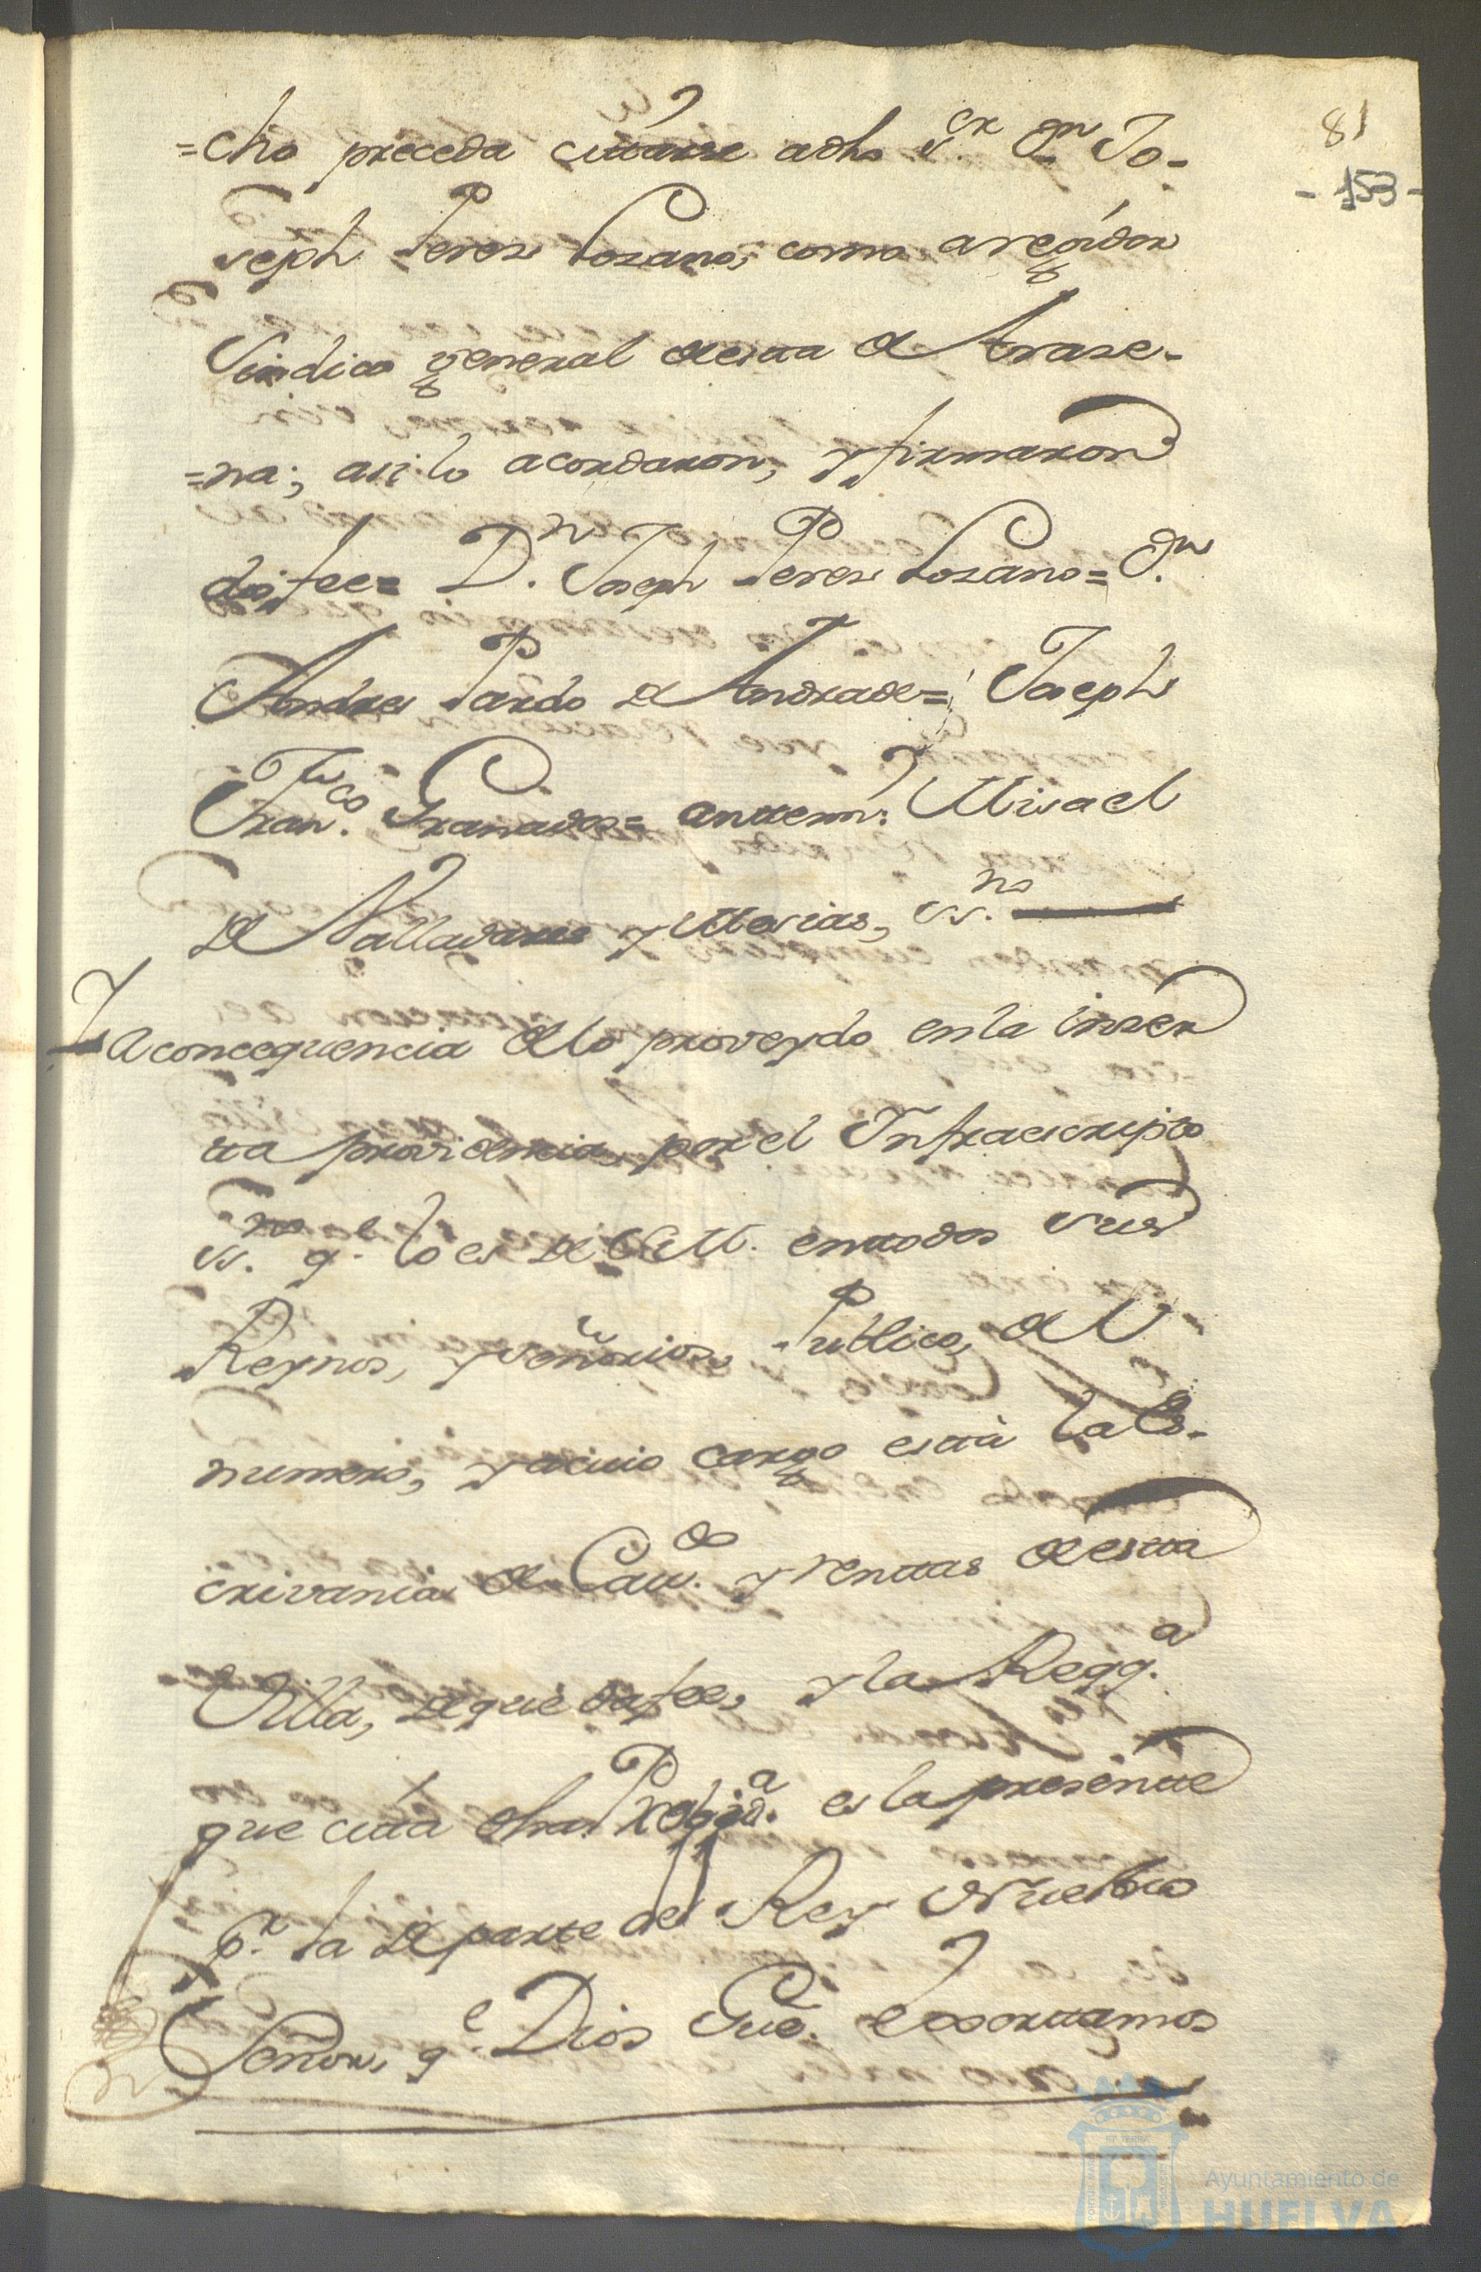 81
- 153 -
=cho preceda cittarse adho Sr. Dn Jo-
seph Peres Losano, como a regidor
Sindico general desta de Arase-
=na; asi lo acordaron, y firmaron
doi fee= Dn. Joseph Peres Losano= Dn.
Andres Pardo de Andrade= Joseph
Franco. Granados= anttemi: Misael
de Valladares y Mesias, ss.no
Y a consequencia de lo proveydo en la inser
tta providencia, por el Infraescripto
ss.no qe. lo es de S.M. en ttodos sus
Reynos, y señorios, Publico, del
numero, y a cuio cargo está la Es-
crivania de Cav.do y renttas desta
Villa, de que da fee, y la Reqq.a
que cita dha es la presentte
p.r la de parte del Rey Nuestro
Señor, qe. Dios Gue. exorttamos
Ayuntamiento de
HUELVA